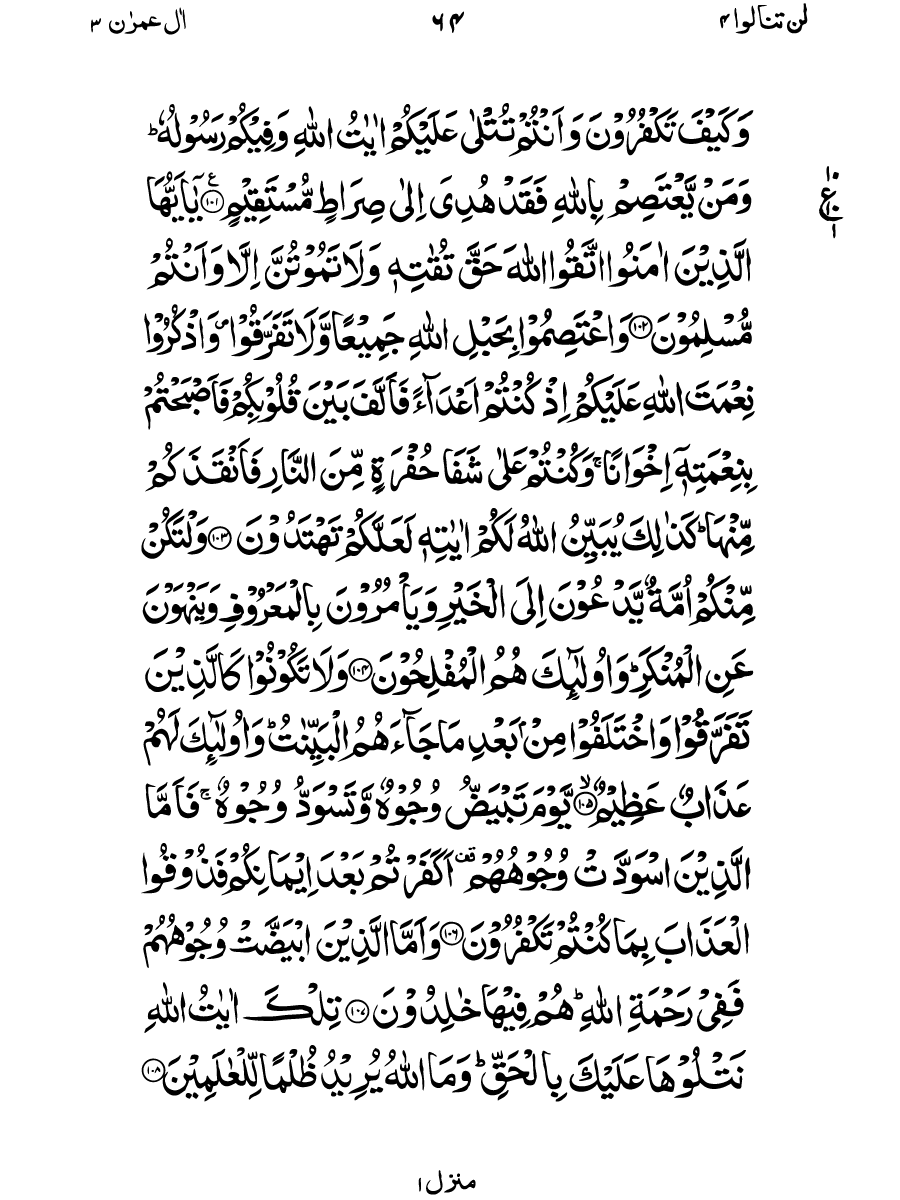 لن تنالوا ۴ ۶۴ اٰل عمرٰن ۳
وَكَيْفَ تَكْفُرُوْنَ وَاَنْتُمْ تُتْلٰى عَلَيْكُمْ اٰيٰتُ اللّٰهِ وَفِيْكُمْ رَسُوْلُهٗ ؕ
وَمَنْ يَّعْتَصِمْ بِاللّٰهِ فَقَدْ هُدِىَ اِلٰى صِرَاطٍ مُّسْتَقِيْمٍ ﴿۱۰۱﴾ ع يٰۤاَيُّهَا
۱۰
ع
۱
الَّذِيْنَ اٰمَنُوا اتَّقُوا اللّٰهَ حَقَّ تُقٰتِهٖ وَلَا تَمُوْتُنَّ اِلَّا وَاَنْتُمْ
مُّسْلِمُوْنَ ﴿۱۰۲﴾ وَاعْتَصِمُوْا بِحَبْلِ اللّٰهِ جَمِيْعًا وَّلَا تَفَرَّقُوْا ۪ وَاذْكُرُوْا
نِعْمَتَ اللّٰهِ عَلَيْكُمْ اِذْ كُنْتُمْ اَعْدَآءً فَاَلَّفَ بَيْنَ قُلُوْبِكُمْ فَاَصْبَحْتُمْ
بِنِعْمَتِهٖۤ اِخْوَانًا ۚ وَكُنْتُمْ عَلٰى شَفَا حُفْرَةٍ مِّنَ النَّارِ فَاَنْقَذَكُمْ
مِّنْهَا ؕ كَذٰلِكَ يُبَيِّنُ اللّٰهُ لَكُمْ اٰيٰتِهٖ لَعَلَّكُمْ تَهْتَدُوْنَ ﴿۱۰۳﴾ وَلْتَكُنْ
مِّنْكُمْ اُمَّةٌ يَّدْعُوْنَ اِلَى الْخَيْرِ وَيَاْمُرُوْنَ بِالْمَعْرُوْفِ وَيَنْهَوْنَ
عَنِ الْمُنْكَرِ ؕ وَاُولٰٓئِكَ هُمُ الْمُفْلِحُوْنَ ﴿۱۰۴﴾ وَلَا تَكُوْنُوْا كَالَّذِيْنَ
تَفَرَّقُوْا وَاخْتَلَفُوْا مِنْۢ بَعْدِ مَا جَآءَهُمُ الْبَيِّنٰتُ ؕ وَاُولٰٓئِكَ لَهُمْ
عَذَابٌ عَظِيْمٌ ﴿۱۰۵﴾ ۙ يَّوْمَ تَبْيَضُّ وُجُوْهٌ وَّتَسْوَدُّ وُجُوْهٌ ۚ فَاَمَّا
الَّذِيْنَ اسْوَدَّتْ وُجُوْهُهُمْ ۟ اَكَفَرْتُمْ بَعْدَ اِيْمَانِكُمْ فَذُوْقُوا
الْعَذَابَ بِمَا كُنْتُمْ تَكْفُرُوْنَ ﴿۱۰۶﴾ وَاَمَّا الَّذِيْنَ ابْيَضَّتْ وُجُوْهُهُمْ
فَفِىْ رَحْمَةِ اللّٰهِ ؕ هُمْ فِيْهَا خٰلِدُوْنَ ﴿۱۰۷﴾ تِلْكَ اٰيٰتُ اللّٰهِ
نَتْلُوْهَا عَلَيْكَ بِالْحَقِّ ؕ وَمَا اللّٰهُ يُرِيْدُ ظُلْمًا لِّلْعٰلَمِيْنَ ﴿۱۰۸﴾
منزل ۱